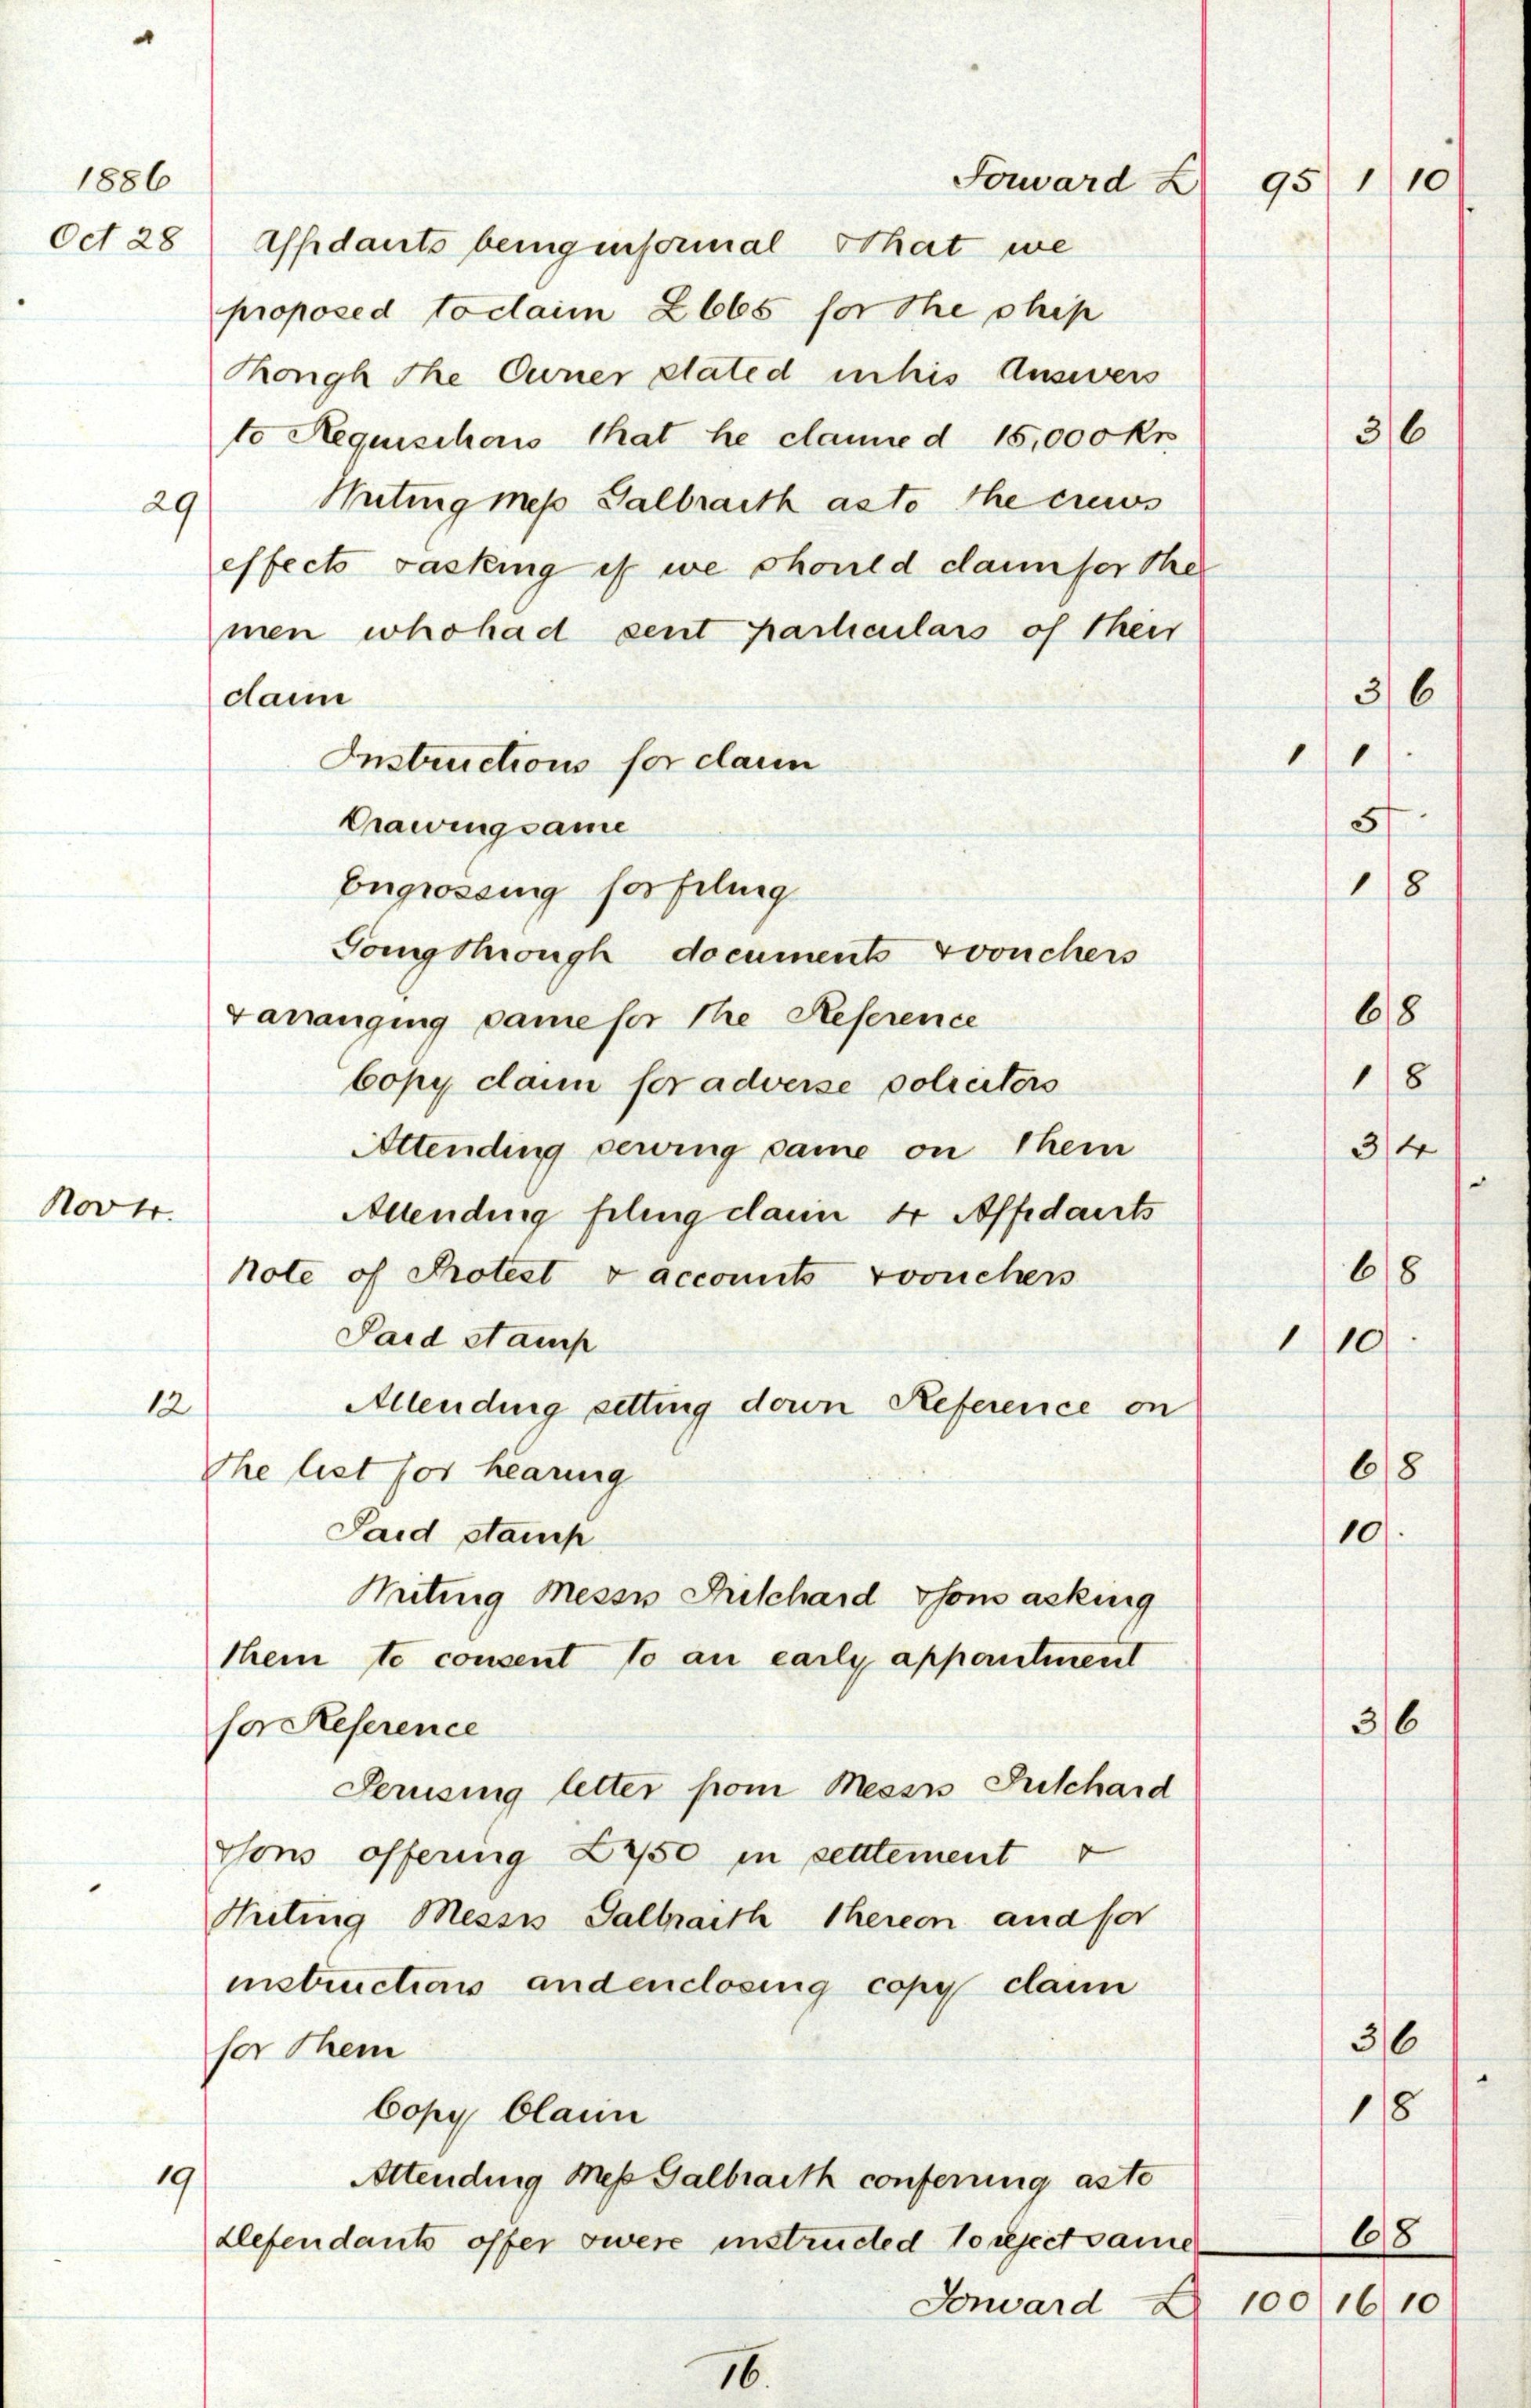 1886 Forward £ 95 1 10
Oct 28 Affidavits being informal & that we
proposed to claim £665 for the ship
though the Owner stated in his Answers
to Requisitions that he claimed 15,000 Kr 3 6
29 Writing Mess Galbraith as to the crews
effects & asking if we should claim for the
men who had sent particulars of their
claim 3 6
Instructions for claim 1 1 .
Drawing same 5 .
Engrossing for filing 1 8
Going through documents & vouchers
& arranging same for the Reference 6 8
Copy claim for adverse solicitors 1 8
Attending serving same on them 3 4
Nov 4. Attending filing claim 4 Affidavits
Note of Protest & accounts & vouchers 6 8
Paid Stamp 1 10 .
12 Attending setting down Reference on
the list for hearing 6 8
Paid stamp 10 .
Writing Messrs Pritchard & Sons asking
them to consent to an early appointment
for Reference 3 6
Perusing letter from Messrs Pritchard
& Sons offering £450 in settlement &
Writing Messrs Galbraith thereon and for
instructions and enclosing copy claim
for them 3 6
Copy Claim 1 8
19 Attending Mess Galbraith conferring as to
Defendants offer & were instructed to reject same 6 8
Forward £ 100 16 10
16.